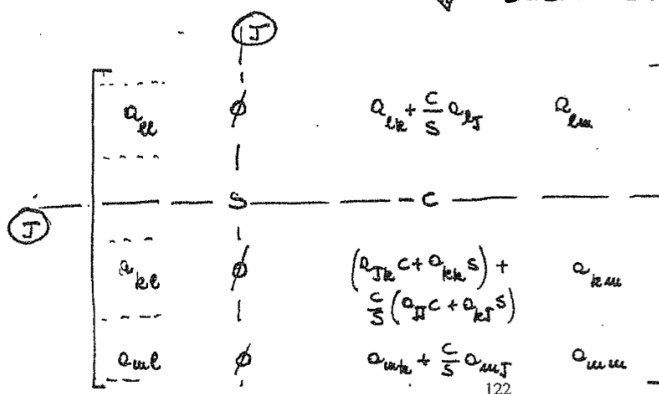 J
a_ll ϕ a_lk + C/S a_lJ a_lm
J S C
a_kl ϕ (a_Jk C + a_kk S) + a_km
C/S (a_JJ C + a_kJ S)
a_ml ϕ a_mk + C/S a_mJ a_mm
122